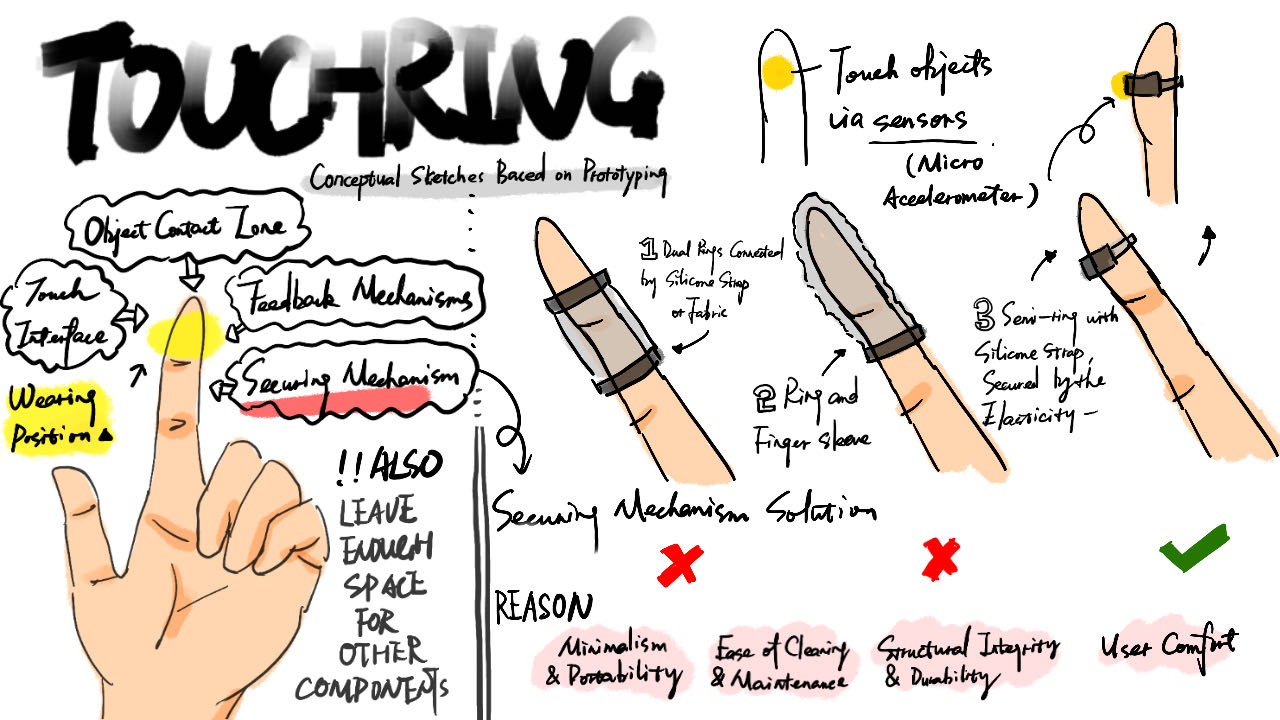 TOUCHRING
Conceptual Sketches Baced on Prototyping
Object Contact Zone
Touch
Interface
Feedback Mechanisms
Securing Mechanism
Wearing
Position
!! ALSO
LEAVE
ENOUGH
SPACE
FOR
OTHER
COMPONENTS
Touch objects
via sensors
(Micro
Acelerometer)
1 Dual Rings Connected
by Silicone Strap
or Fabric
2 Ring and
Finger Sleeve
3 Semi-ring with
Silicone Strap,
Secured by the
Elasticity -
Securing Mechanism Solution
REASON
Minimalism
& Portability
Ease of Cleaning
& Maintenance
Structural Integrity
& Durability
User Comfort